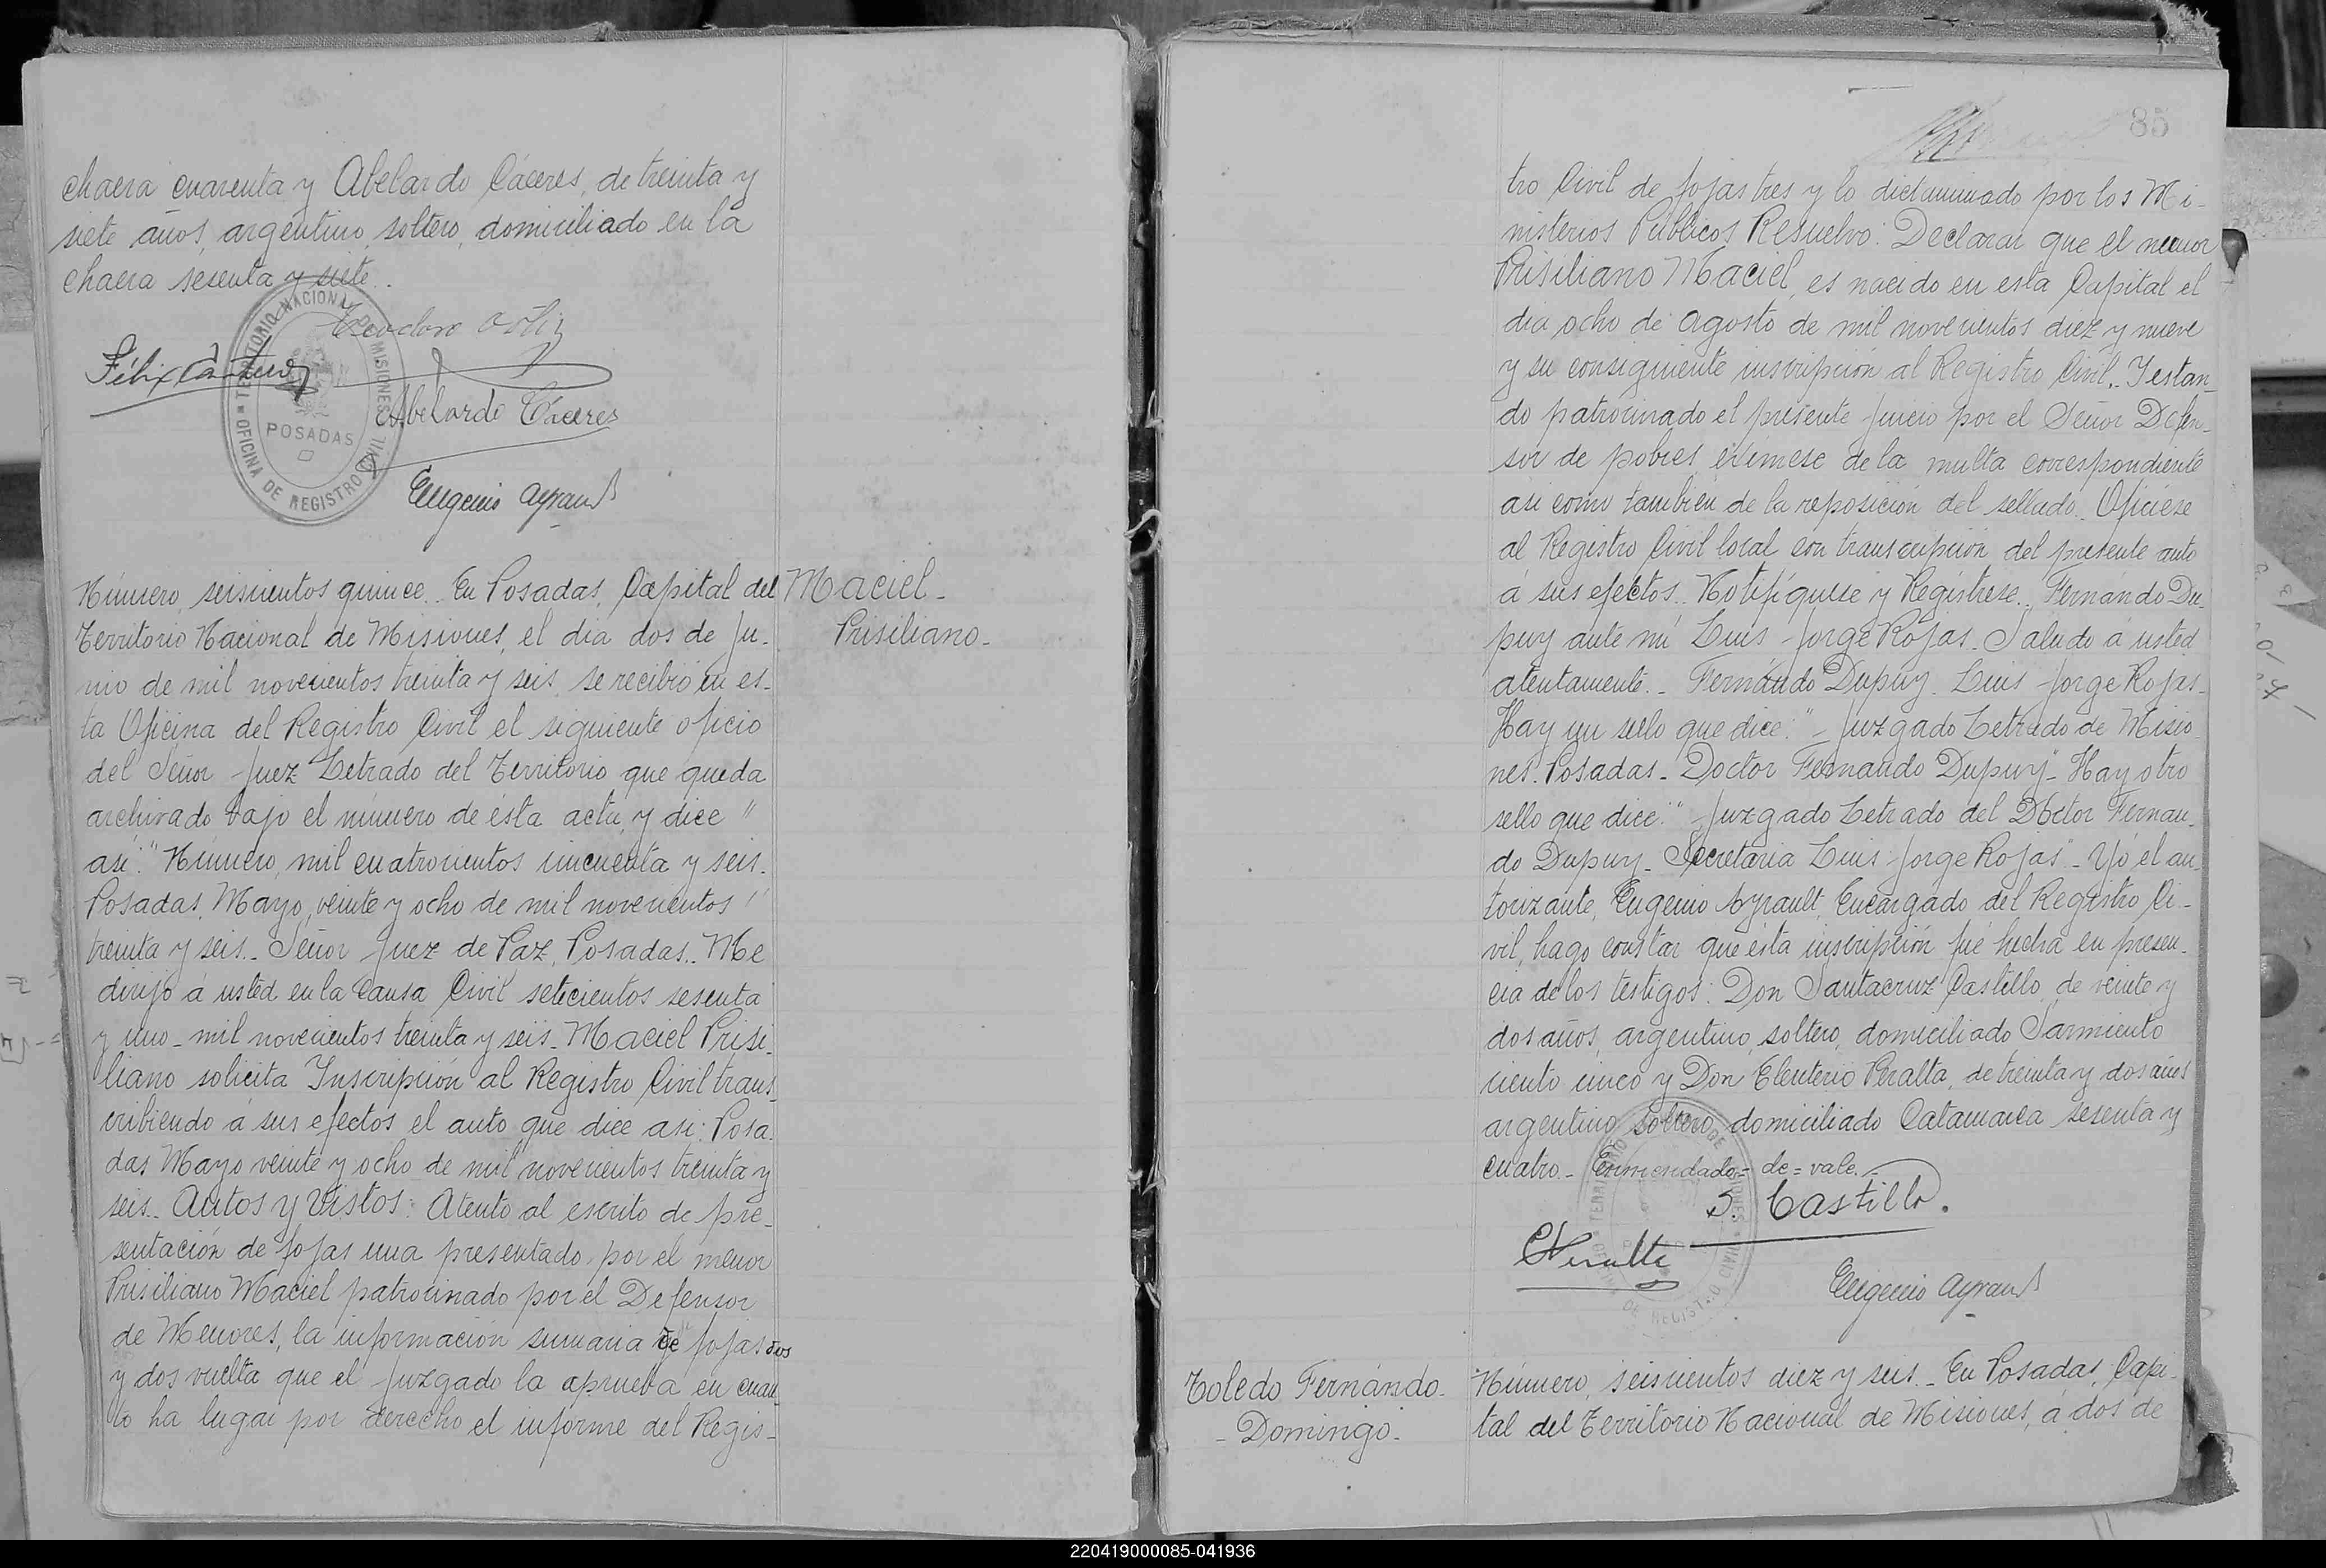 chacra cuarenta y Abelardo Cáceres, de treinta y
siete años, argentino, soltero, domiciliado en la
chacra sesenta y siete..
TERRITORIO NACIONAL DE MISIONES
OFICINA DE REGISTRO CIVIL
POSADAS
Teodoro
Félix
Abelardo Cáceres
Eugenio Ayrault
Número, seiscientos quince.. En Posadas, Capital del
Territorio Nacional de Misiones, el dia dos de Ju-
nio de mil novecientos treinta y seis, se recibió en es-
ta Oficina del Registro Civil el siguiente oficio
del Señor Juez Letrado del Territorio que queda
archivado bajo el número de ésta acta, y dice "
asi:" Número, mil cuatrocientos cincuenta y seis.
Posadas, Mayo, veinte y ocho de mil novecientos "
treinta y seis.- Señor Juez de Paz, Posadas.. Me
dirijo á usted en la Causa Civil setecientos sesenta
y uno - mil novecientos treinta y seis - Maciel Prisi-
liano solicita Inscripción al Registro Civil trans-
cribiendo á sus efectos el auto que dice asi: Posa-
das Mayo veinte y ocho de mil novecientos treinta y
seis.. Autos y Vistos: Atento al escrito de pre-
sentación de fojas una presentado por el menor
Prisiliano Maciel patrocinado por el Defensor
de Menores, la información sumaria de fojas dos
y dos vuelta que el Juzgado la aprueba en cuan-
to ha lugar por derecho el informe del Regis-
Maciel -
Prisiliano -
85
tro Civil de fojas tres y lo dictaminado por los Mi-
nisterios Públicos, Resuelvo: Declarar que el menor
Prisiliano Maciel, es nacido en esta Capital el
dia ocho de agosto de mil novecientos diez y nueve
y su consiguiente inscripción al Registro Civil.. Y estan-
do patrocinado el presente juicio por el Señor Defen-
sor de pobres, exímese de la multa correspondiente
asi como también de la reposición del sellado.. Ofíciese
al Registro Civil local con transcripción del presente auto
á sus efectos.. Notifíquese y Regístrese.. Fernándo Du-
puy ante mi Luis Jorge Rojas. Saludo á usted
atentamente.- Fernándo Dupuy. Luis Jorge Rojas-
Hay un sello que dice:" - Juzgado Letrado de Misio-
nes. Posadas - Doctor Fernando Dupuy"- Hay otro
sello que dice:" Juzgado Letrado del Doctor Fernan-
do Dupuy - Secretaria Luis Jorge Rojas"- Yó el au-
torizante, Eugenio Ayrault, Encargado del Registro Ci-
vil, hago constar que ésta inscripción fué hecha en presen-
cia de los testigos: Don Santacruz Castillo, de veinte y
dos años, argentino, soltero, domiciliado Sarmiento
ciento cinco y Don Eleuterio Peralta, de treinta y dos años
argentino, soltero, domiciliado Catamarca sesenta y
cuatro.- Enmendado = de = vale.-
S. Castillo.
E Peralta
Eugenio Ayrault
Toledo Fernándo.
- Domingo -
Número, seiscientos diez y seis.- En Posadas, Capi-
tal del Territorio Nacional de Misiones, á dos de
220419000085-041936